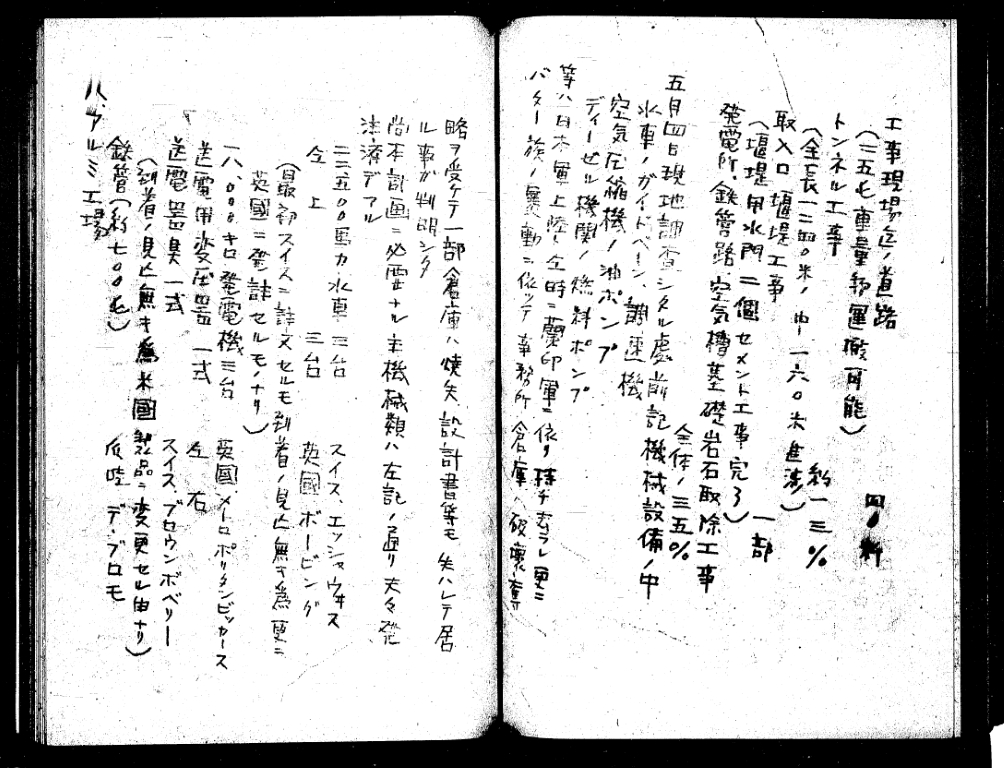 工事現場迄ノ道路　四〇粁
(二五屯車量物運搬可能)
トンネル工事　約一三%
(全長一二四〇米ノ中一六〇米進渉)
取入口堰堤工事　一部
(堰堤用水門二個セメント工事完了)
発電所、鉄管路、空気槽基礎岩石取除工事
全体ノ三五%
五月四日現地調査シタル處前記機械設備ノ中
水車ノガイドベーン、調速機
空気圧縮機ノ油ポンプ
ディーゼル機関ノ燃料ポンプ
等ハ日本軍上陸ト仝時ニ蘭印軍ニ依リ持チ去ラレ更ニ
バター族ノ暴動ニ依ッテ事務所倉庫ハ破壊奪
略ヲ受ケテ一部倉庫ハ焼失設計書等モ失ハレテ居
ル事ガ判明シタ
尚本計画ニ必要ナル主機械類ハ左記ノ通リ夫々発
注済デアル
二二五〇〇馬力水車　三台　スイス、エッシャウヰス
仝上　三台　英國ボービング
(最初スイスニ註文セルモ到着ノ見込無キ為更ニ
英國ニ発註セルモノナリ)
一八、〇〇〇キロ発電機三台　英國メートロポリタンビッカース
送電用変圧器一式　仝右
送電器具一式　スイス、ブロウンボベリー
(到着ノ見込無キ為米國製品ニ変更セル由ナリ)
鉄管(約七〇〇屯)　爪哇デ・ブロモ
八、アルミ工場